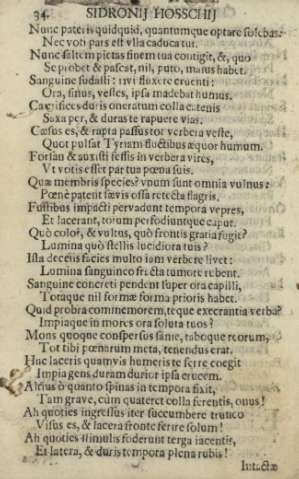 34 SIDRONII HOSSCHII
Nunc pateris quidquid, quantumque optare solebas:
Nec voti pars est ulla caduca tui.
Nunc saltem pietas finem tua contigit, &, quo
Se probet & pascat, nil, puto, maius habet.
Sanguine sudasti: rivi fluxere cruenti:
Ora, sinus, vestes, ipsa madebat humus.
Carnifices duris oneratum colla catenis
Saxa per, & duras te rapuere vias.
Cæsus es, & rapta passus tot verbera veste,
Quot pulsat Tyriam fluctibus æquor humum.
Forsan & auxisti fessis in verbera vires,
Ut votis esset par tua pœna suis.
Quæ membris species? unum sunt omnia vulnus:
Pœne patent sævis ossa retecta flagris.
Fustibus impacti pervadunt tempora vepres,
Et lacerant, totum perfodiuntque caput.
Quò color, & vultus, quò frontis gratia fugit?
Lumina quò stellis lucidiora tuis?
Ista decens facies multo iam verbere livet:
Lumina sanguineo fracta tumore rubent.
Sanguine concreti pendent super ora capilli,
Totaque nil formæ forma prioris habet.
Quid probra commemorem, teque execrantia verba?
Impiaque in mores ora soluta tuos?
Mons quoque conspersus sanie, taboque reorum,
Tot tibi pœnarum meta, tenendus erat.
Huc laceris quamvis humeris te ferre coegit
Impia gens duram durior ipsa crucem.
Altius ò quanto spinas in tempora fixit,
Tam grave, cùm quateret colla ferentis, onus!
Ah quoties ingressus iter succumbere trunco
Visus es, & lacera fronte ferire solum!
Ah quoties stimulis foderunt terga iacentis,
Et latera, & duris tempora plena rubis!
Intactæ